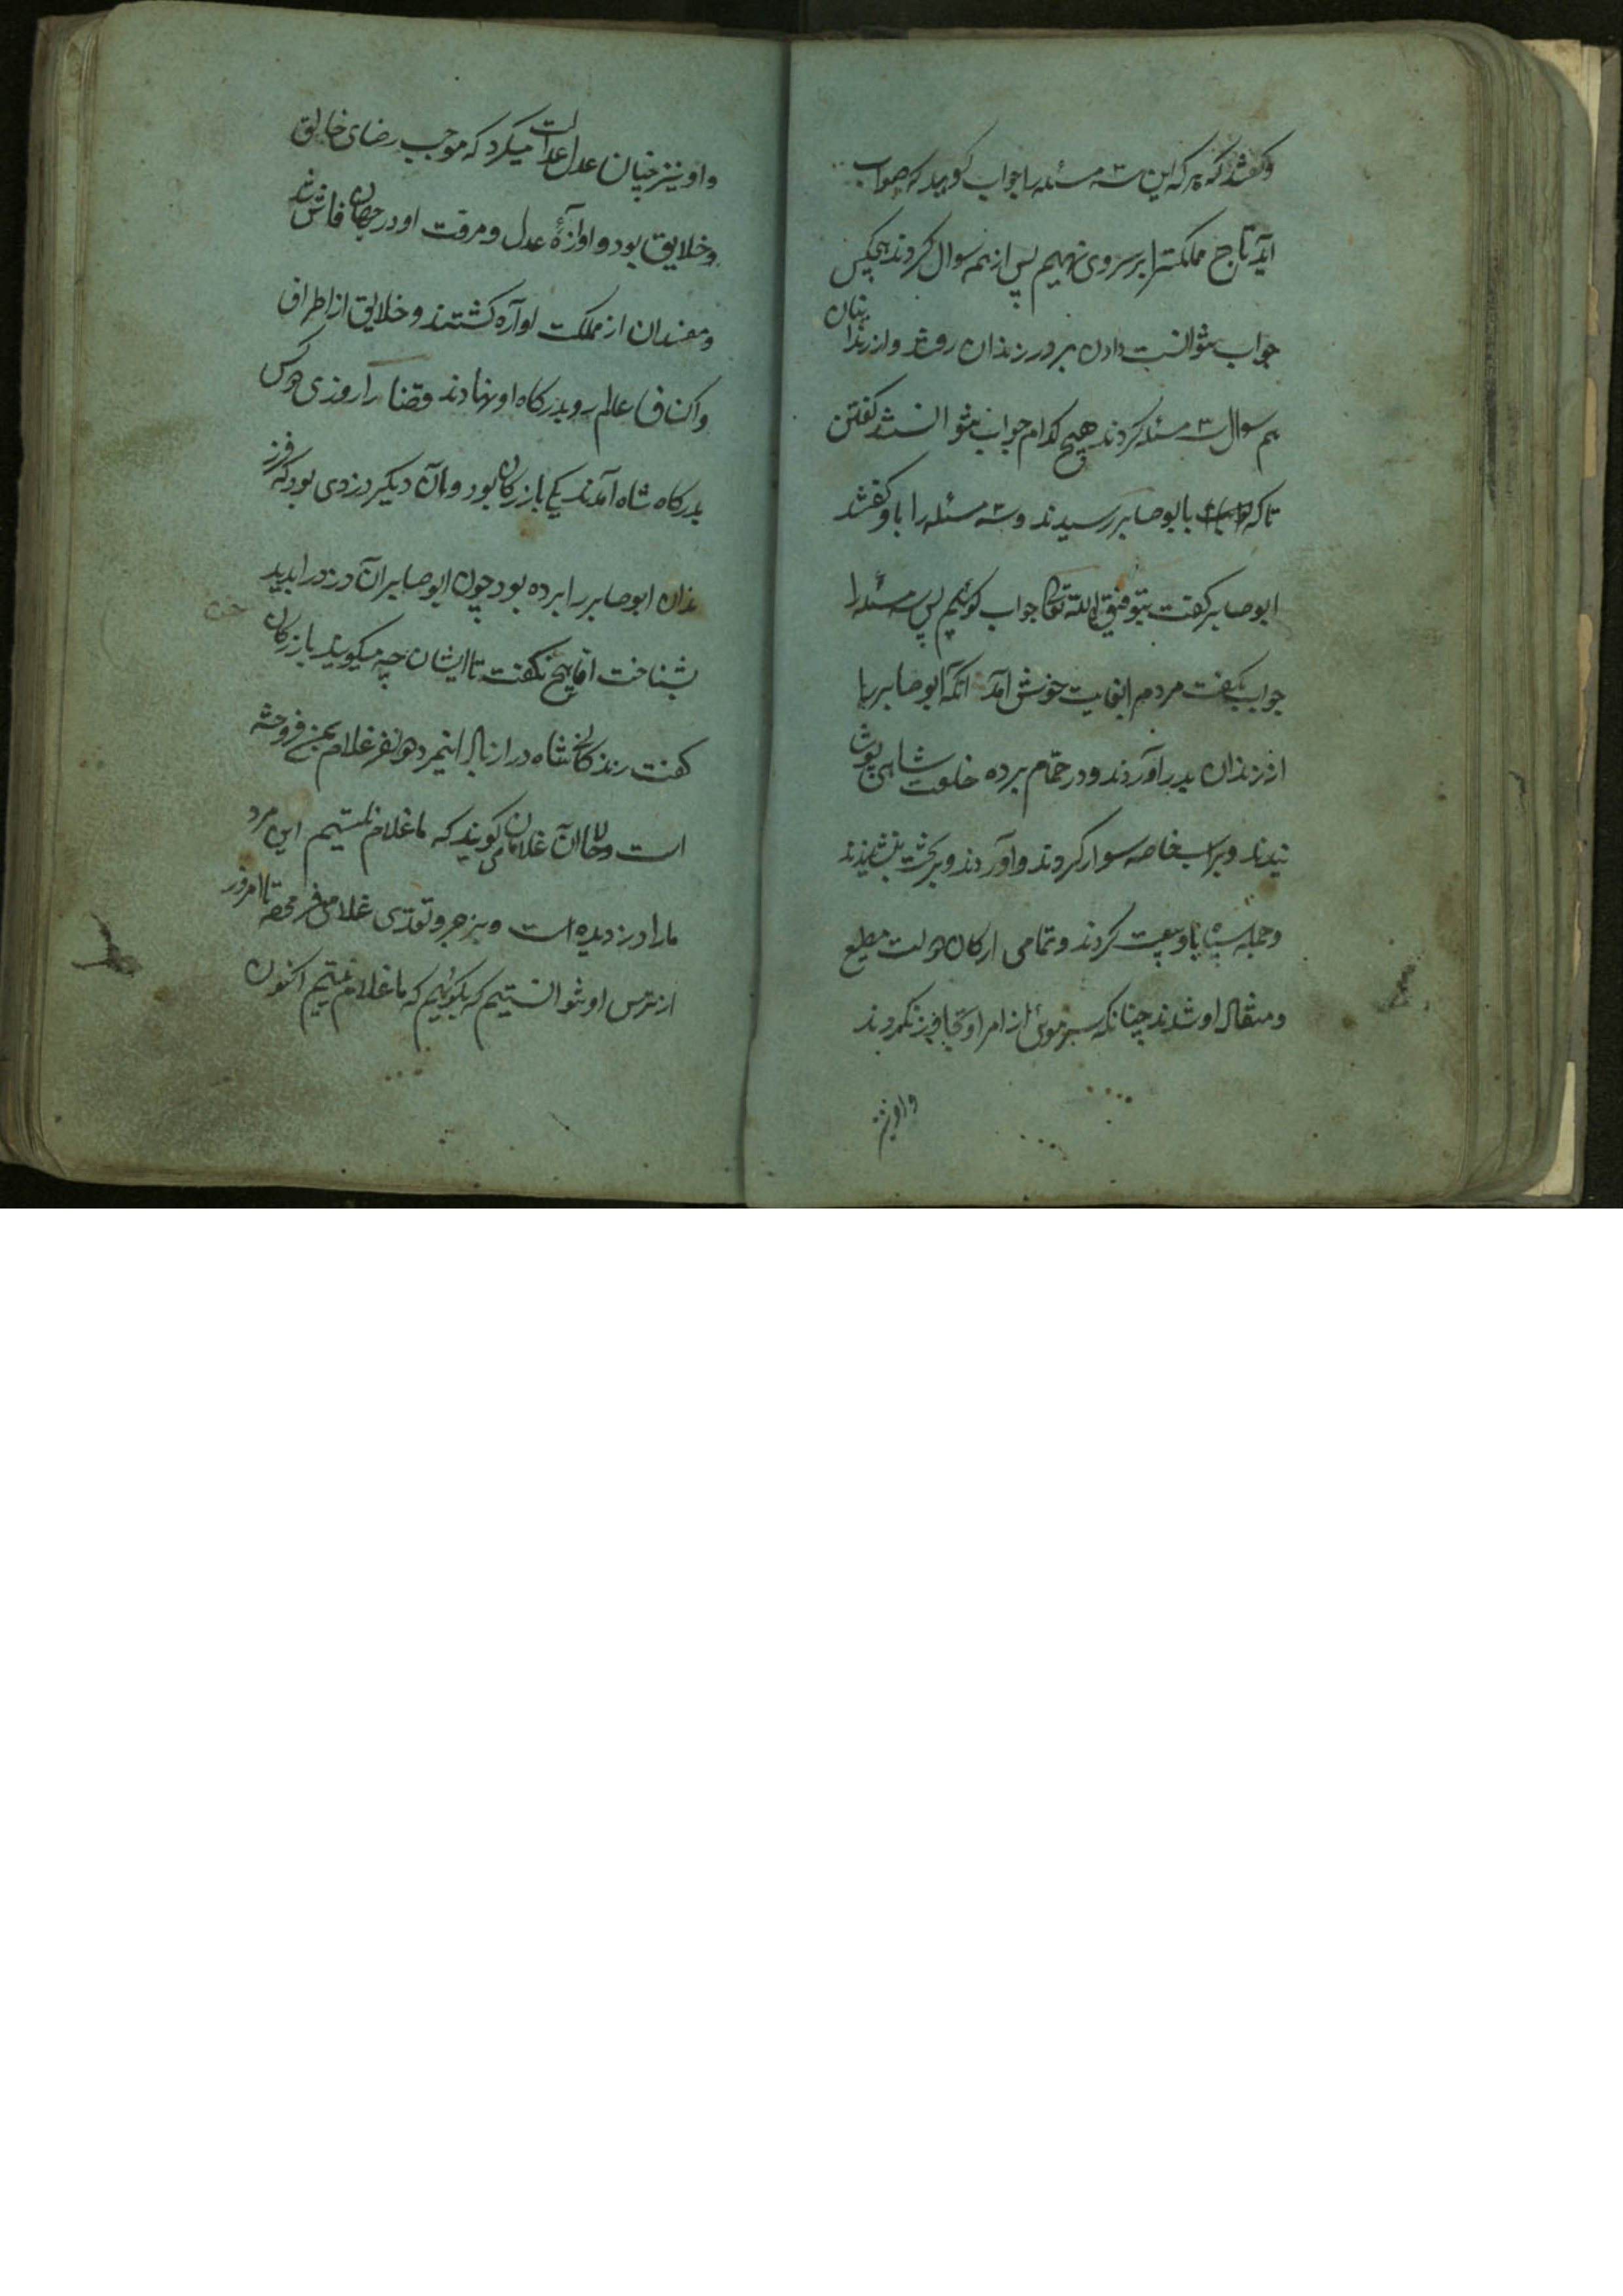 وکفتند که هر که این سه مسئله را جواب کوید که صواب
آید تاج مملکترا بر سر وی نهیم پس از همه سوال کردند هیچکس
جواب نتوانست دادن بر در زندان رفتند واز زندانیان
هم سوال سه مسئله کردند هیچ کدام جواب نتوانستند کفتن
تا که بابو صابر رسیدند و سه مسئله را باو کفتند
ابو صابر کفت بتوفیق الله تعالی جواب کوئیم پس سه مسئله را
جواب بکفت مردم را بغایت خوش آمد آنکه ابو صابر را
از زندان بدر آوردند و در حمّام برده خلعت شاهی پوشا
نیدند و بر اسب خاصه سوار کردند و آوردند و بر تخت بنشانیدند
و جمله سپاه باو بیعت کردند و تمامی ارکان دولت مطیع
و منقاد او شدند چنانکه سر موئی از امر او تجاوز نکردند
و او نیز
و او نیز چنان عدل عدالت میکرد که موجب رضای خالق
و خلایق بود و اوازهٔ عدل و مروّت او در جهان فاش شد
و مفسدان از مملکت آواره کشتند و خلایق از اطراف
و اکناف عالم رو بدرکاه او نهادند و قضا را روزی دو کس
بدرکاه شاه آمدند یکی بازرکان بود و آن دیکر دزدی بود که فرز
ندان ابو صابر را برده بود چون ابو صابر آن دزد را بدید
بشناخت امّا هیچ نکفت تا ایشان چه میکویند بازرکان
کفت زندکانی شاه دراز باد اینمرد دو نفر غلام بمن فروخته
است و حالا آن غلامان می کویند که ما غلام نیستیم این مرد
ما را دزدیده است و بزجر و تعدّی غلام می فروخته تا امروز
از ترس او نتوانستیم که بکوئیم که ما غلام نیستیم اکنون